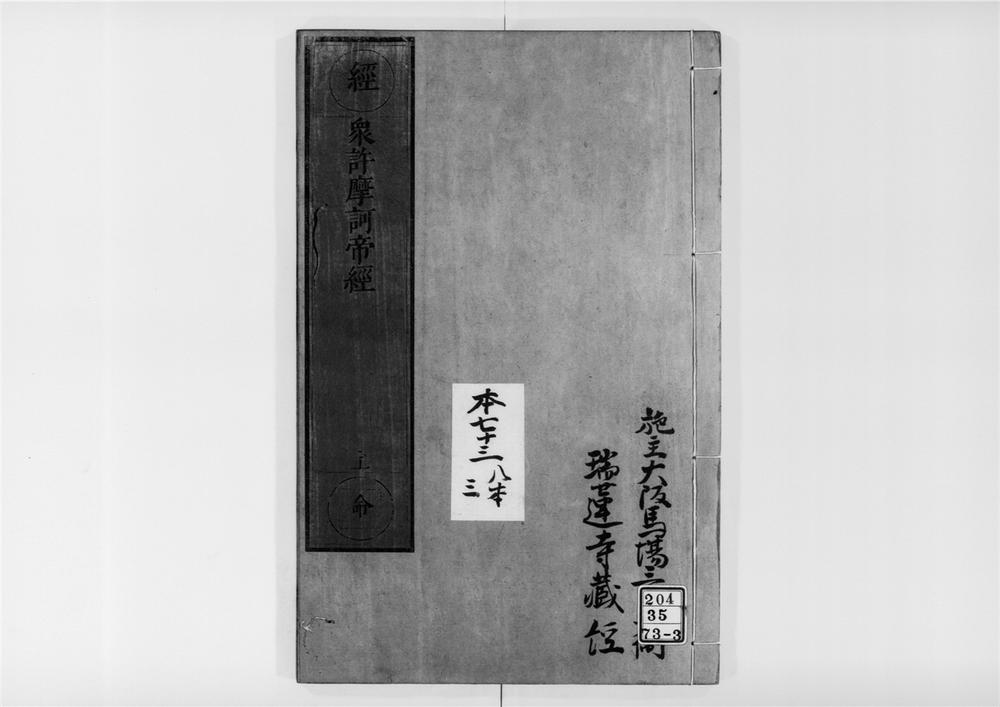 施主大阪馬場三
瑞蓮寺藏經
204
35
73-3
本七十三
八本
三
經
衆許摩訶帝經
命